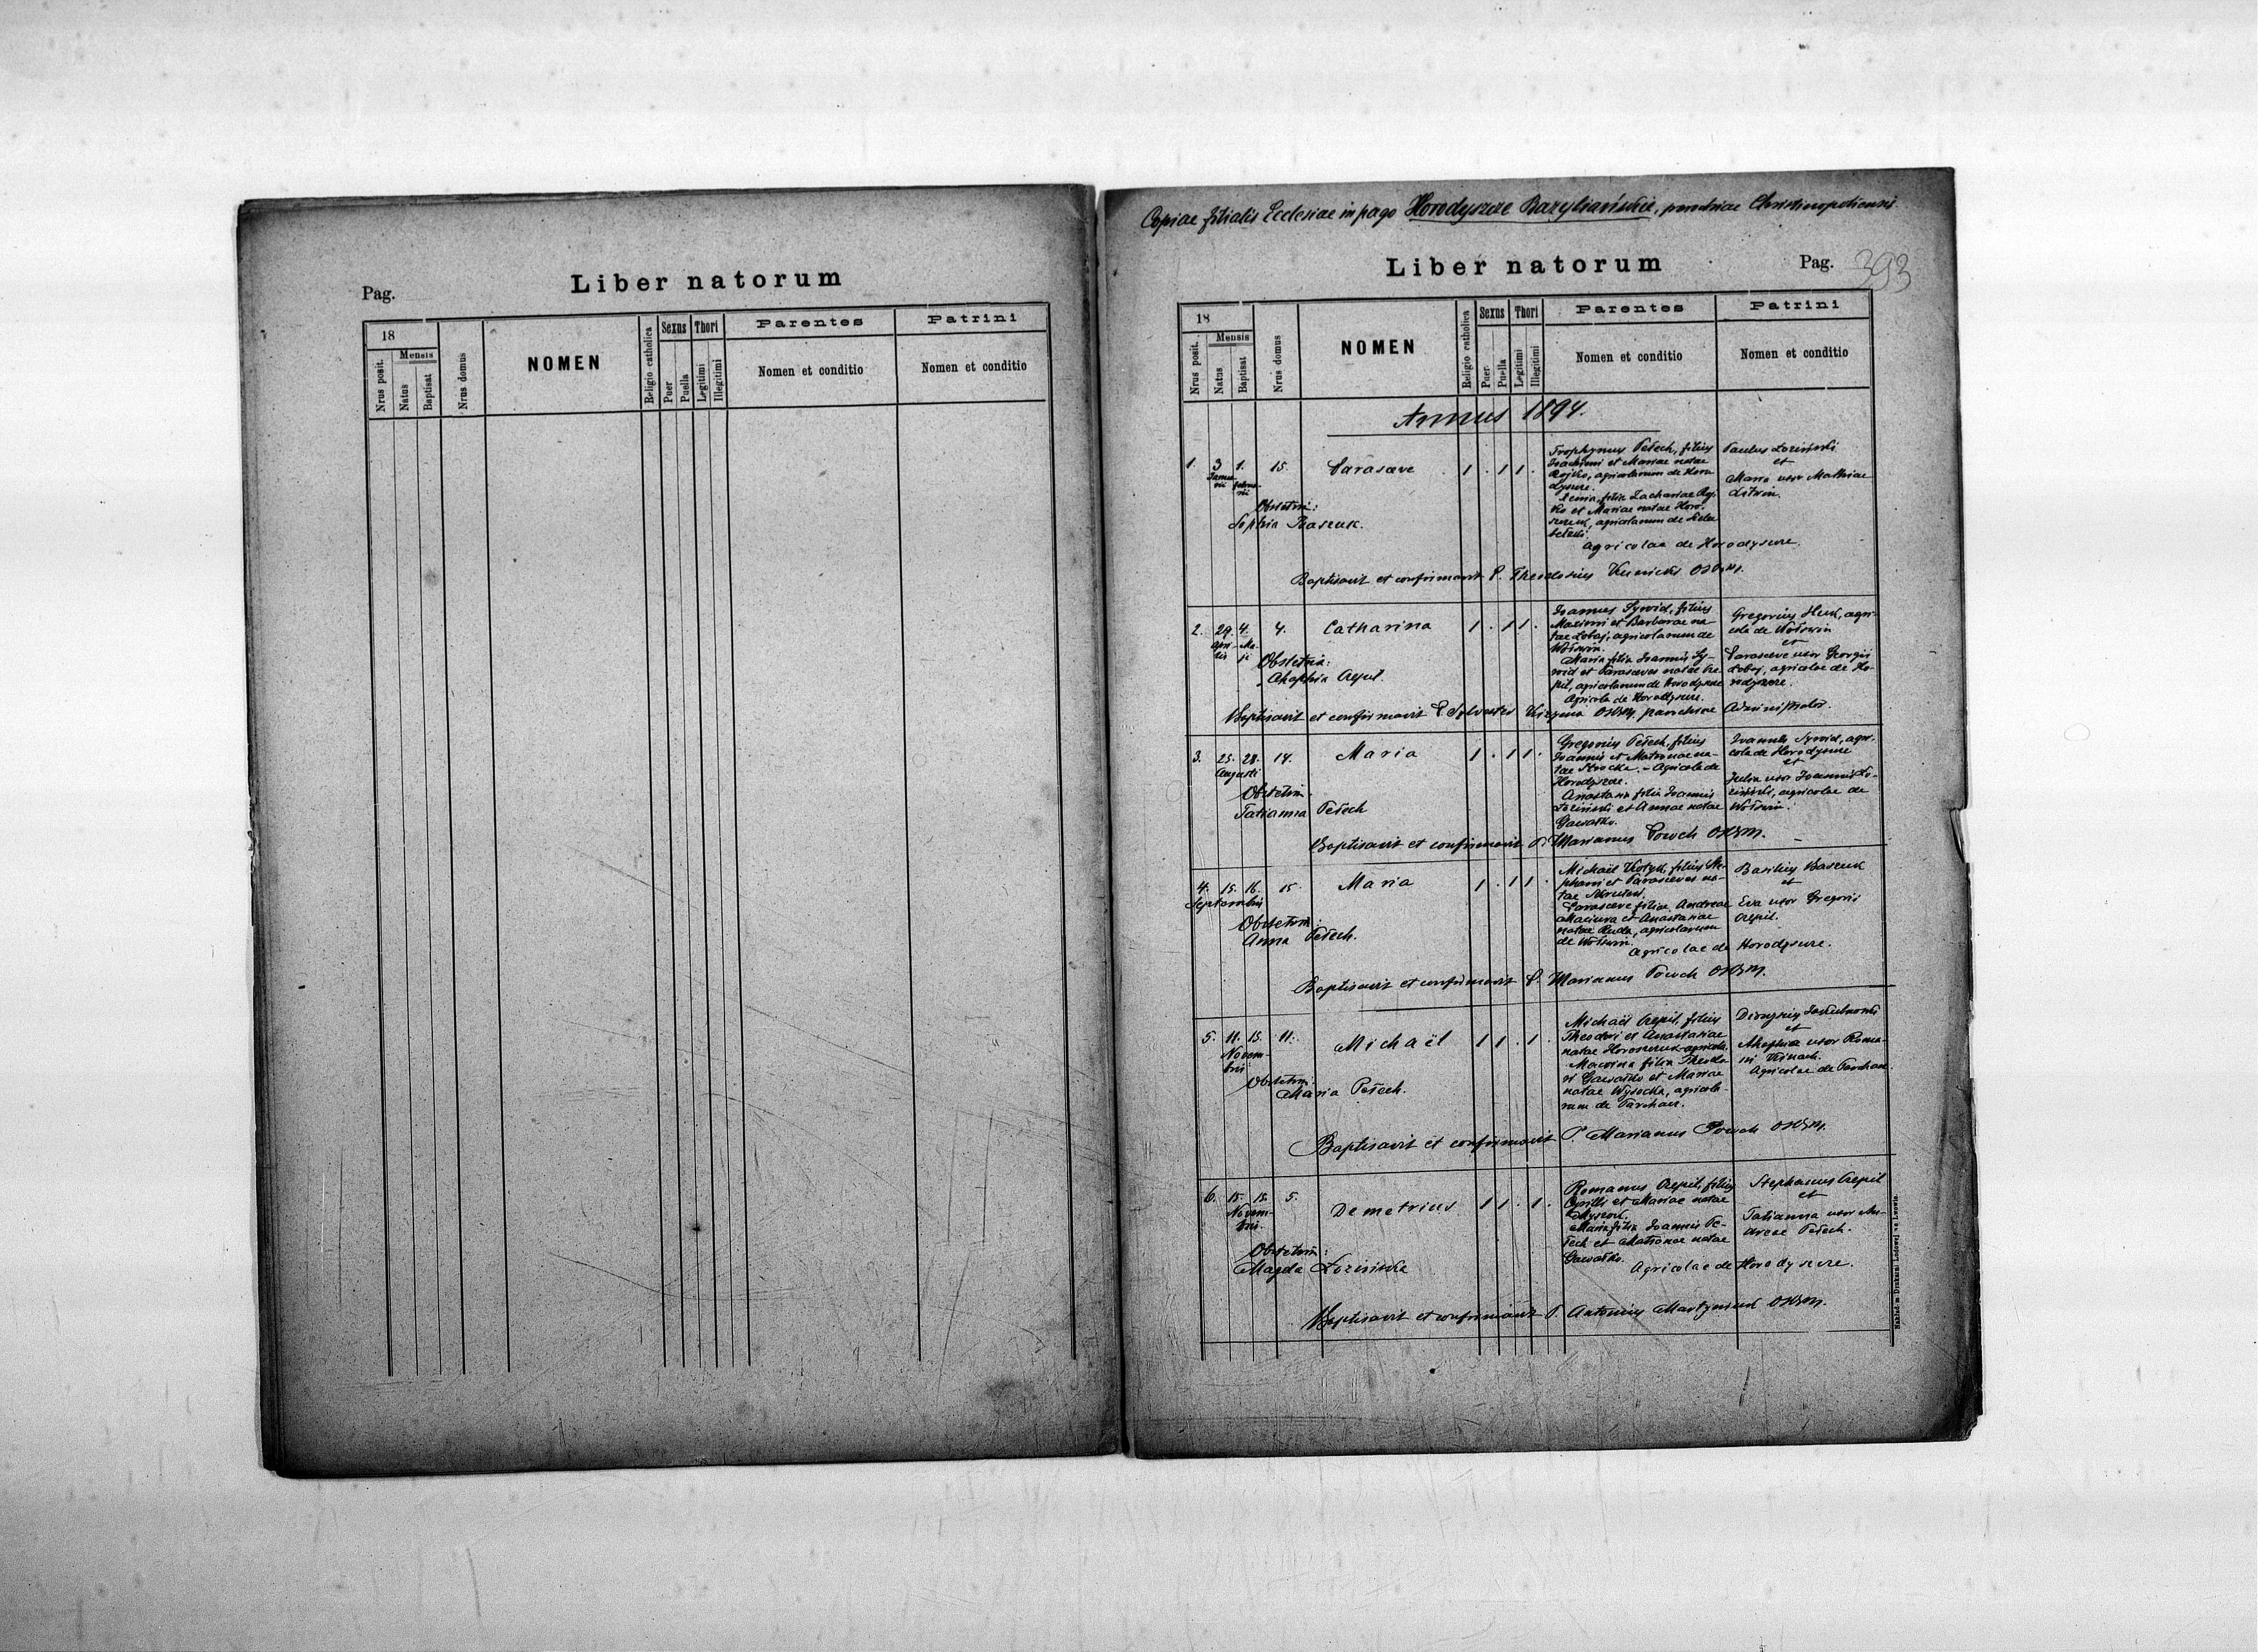 Pag.
Liber natorum
18
Nrus posit.
Mensis
Natus
Baptisat
Nrus domus
NOMEN
Religio catholica
Sexus
Puer
Puella
Thori
Legitimi
Illegitimi
Parentes
Nomen et conditio
Patrini
Nomen et conditio
Copiae filialis Ecclesiae in pago Horodyszcze Bazyliańskie, parochiae Christinopoliensis
Liber natorum
Pag. 393
18
Nrus posit.
Mensis
Natus
Baptisa
Nrus domus
NOMEN
Religio catholica
Sexus
Puer
Puella
Thori
Legitimi
Illegitimi
Parentes
Nomen et conditio
Patrini
Nomen et conditio
Annus 1894.
1. 3 1. 15. Parasceve 1 . 1 1 .
Janua- Februa-
rii rii
Obstetrix:
Sophia Baszuk.
Trophymus Pełech, filius
Joachimi et Mariae natae
Rojko, agricolarum de Horo-
dyszcze.
Xenia, filia Zachariae Roj-
ko et Mariae natae Horo-
szczuk, agricolarum de
Agricolae de Horodyszcze.
Paulus Łoziński
et
Maria uxor Mathiae
Litwin.
Baptisavit et confirmavit P. Theodosius OSBM.
2. 29. 4. 4. Catharina 1 . 1 1 .
Apri- Ma-
lis ji
Obstetrix:
Ahaphia Czepil.
Joannes Sywid, filius
Maximi et Barbarae na-
tae Łobaj, agricolarum de
Wołswin.
Maria filia Joannis Sy-
wid et Parasceves natae Cze-
pil, agricolarum de Horodyszcze
Agricola de Horodyszcze.
Gregorius Huk, agri-
cola de Wołswin
et
Parasceve uxor Georgii
Łobaj, agricolae de Ho-
rodyszcze.
Baptisavit et confirmavit P. Sylvester OSBM. parochiae Administrator.
3. 25. 28. 14. Maria 1 . 1 1 .
Augusti
Obstetrix
Tatianna Pełech
Gregorius Pełech, filius
Joannis et Matronae na-
tae - Agricola de
Horodyszcze.
Anastasia filia Joannis
Łoziński et Annae natae
Gawałko.
Joannes Sywid, agri-
cola de Horodyszcze
et
Julia uxor Joannis Ło-
ziński, agricolae de
Wołswin.
Baptisavit et confirmavit P. Marianus Powch OSBM.
4. 15. 16. 15. Maria 1 . 1 1 .
Septembris
Obstetrix:
Anna Pełech.
Michaël Kotyk, filius Ste-
phani et Parasceves na-
tae
Parasceve filia Andreae
Maciura et Anastasiae
natae Ruda, agricolarum
de Wołswin.
Agricolae de Horodyszcze.
Basilius Baszuk
et
Eva uxor Gregorii
Czepil.
Baptisavit et confirmavit P. Marianus Powch OSBM.
5. 11. 15. 11. Michaël 1 1 . 1 .
Novem-
bris
Obstetrix:
Maria Pełech.
Michaël Czepil, filius
Theodori et Anastasiae
natae Horoszczuk agricola.
Macrina filia Theodo-
ri Gawałko et Mariae
natae Wysocka, agricola-
rum de Parchacz.
Dionysius Jakubowski
et
Ahaphia uxor Roma-
ni
Agricolae de Parchacz.
Baptisavit et confirmavit P. Marianus Powch OSBM.
6. 15. 15. 5. Demetrius 1 1 . 1 .
Novem-
bris.
Obstetrix:
Magda Łozińska
Romanus Czepil, filius
Cyrilli et Mariae natae
Maria filia Joannis Pe-
łech et Matronae natae
Gawałko.
Agricolae de Horodyszcze.
Stephanus Czepil
et
Tatianna uxor An-
dreae Pełech.
Baptisavit et confirmavit P. Antonius Martyniuk OSBM.